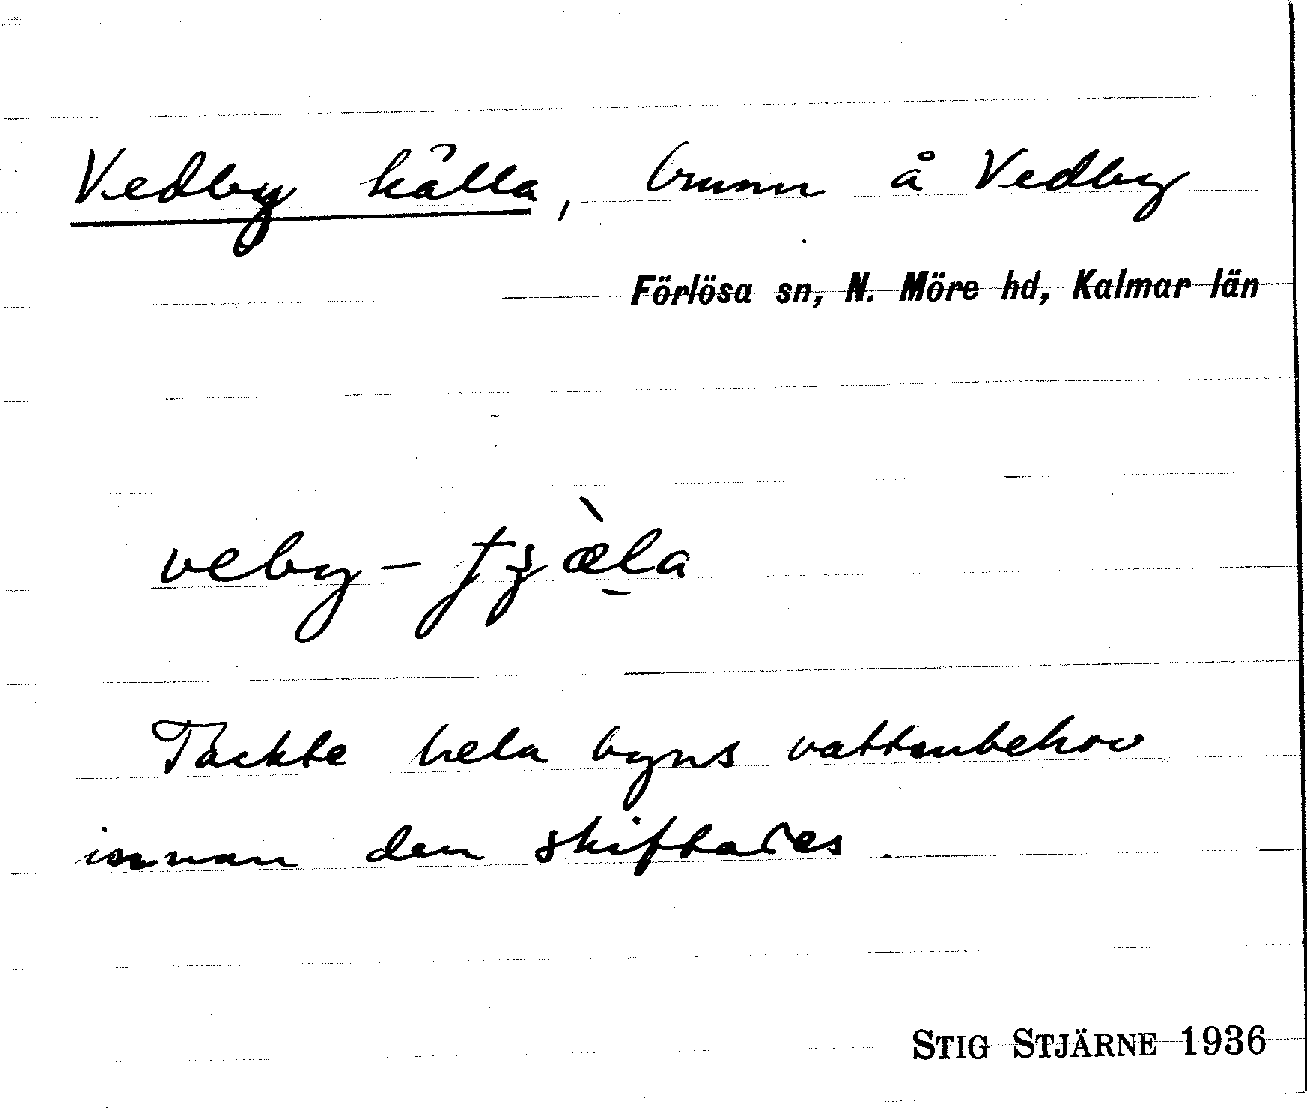 Vedby källa, brunn å Vedby
Förlösa sn, N. Möre hd, Kalmar län
veby - tʒæ̀la
Täckte hela byns vattenbehov
innan den skiftades.
STIG STJÄRNE 1936